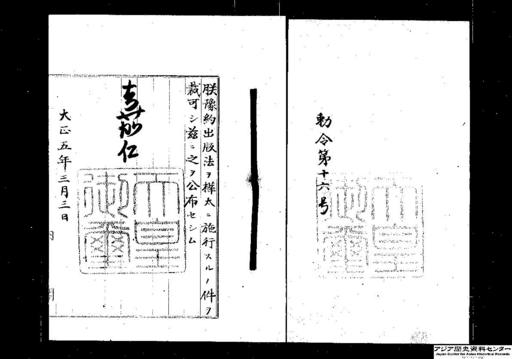 勅令第十六号
朕豫約出版法ヲ樺太ニ施行スルノ件ヲ
裁可シ茲ニ之ヲ公布セシム
嘉仁
天皇
御璽
大正五年三月三日
アジア歴史資料センター
Japan Center for Asian Historical Records